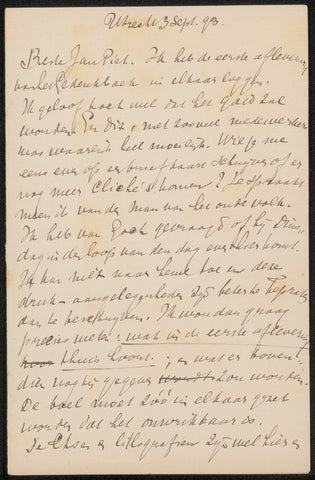 Utrecht 3 Sept. 93.
Beste Jan Piet. Ik heb de eerste aflevering
van het Gedenkboek in elkaar liggen.
Ik geloof toch wel dat het goed zal
worden. En dit, met zooveel medewerkers
was waarlijk heel moeilijk. Wil je me
eens even op een briefkaart schrijven of er
nog meer Cliché's komen? Je sprak
van de man van het oude volk.
Ik heb van Gogh gevraagd of hij Dins-
dag in de loop van den dag even hier komt.
Ik kan niet naar hem toe en deze
druk-aangelegenheden zijn beter te bespreken
dan te beschrijven. Ik wou dan graag
precies weten: wat in de eerste aflevering
thuis hoort; en wat er boven-
dien nog bij gegeven zou worden.
De boel moet zóó in elkaar gezet
worden dat het onwrikbaar is.
De Etsen en lithografien zijn wel hier en